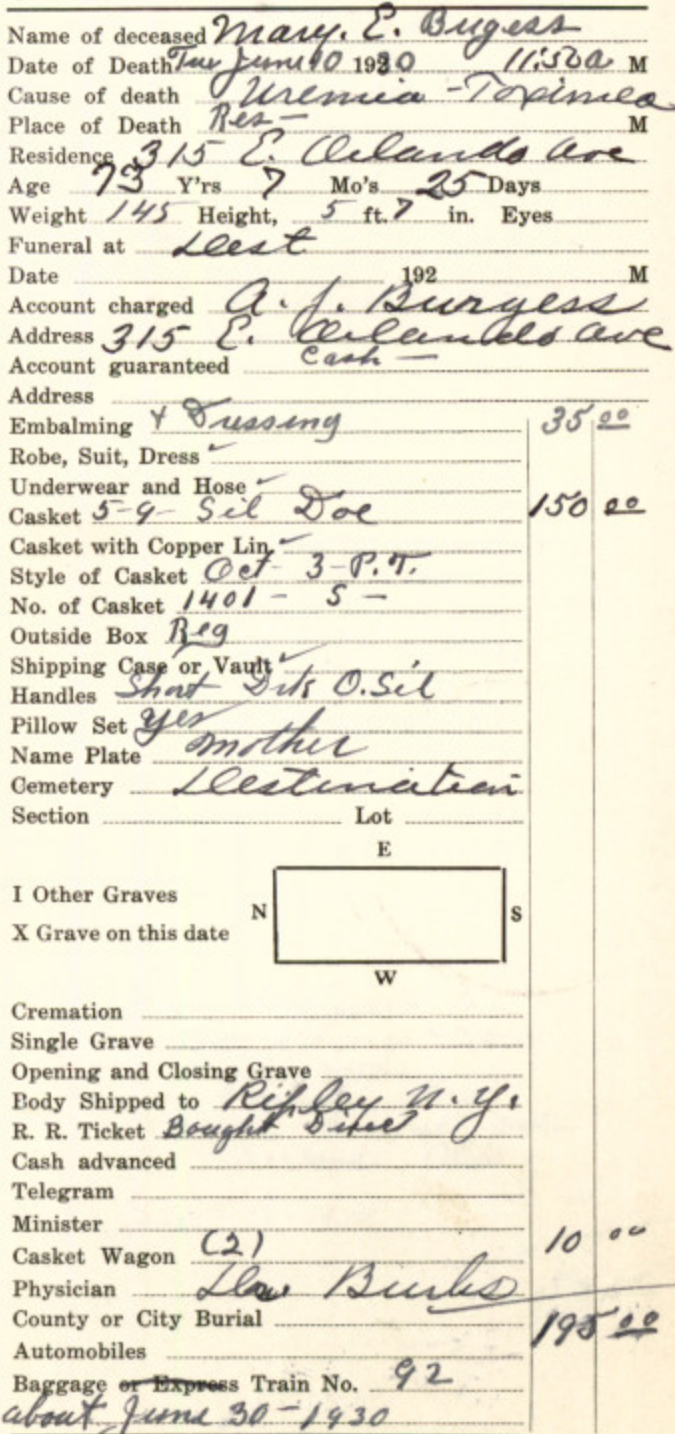 Name of deceased Mary. E. Bugess
Date of Death Tue June 10 1930 11:50 a M
Cause of death Uremia - Toximea
Place of Death Res - M
Residence 315 E. Orlando ave
Age 73 Y'rs 7 Mo's 25 Days
Weight 145 Height, 5 ft. 7 in. Eyes
Funeral at Dest
Date 192 M
Account charged A. J. Burgess
Address 315 E. Orlando ave
Account guaranteed Cash -
Address
Embalming & Dressing 35 00
Robe, Suit, Dress
Underwear and Hose
Casket 5-9- Sil Doe 150 00
Casket with Copper Lin
Style of Casket Oct - 3 - P.T.
No. of Casket 1401 - S -
Outside Box Reg
Shipping Case or Vault
Handles Short O. Sil
Pillow Set yes
Name Plate Mother
Cemetery Destination
Section Lot
E
I Other Graves
N S
X Grave on this date
W
Cremation
Single Grave
Opening and Closing Grave
Body Shipped to Ripley N. Y.
R. R. Ticket Bought
Cash advanced
Telegram
Minister
Casket Wagon (2) 10 00
Physician Burks
County or City Burial 195 00
Automobiles
Baggage or Express Train No. 92
about June 30 - 1930